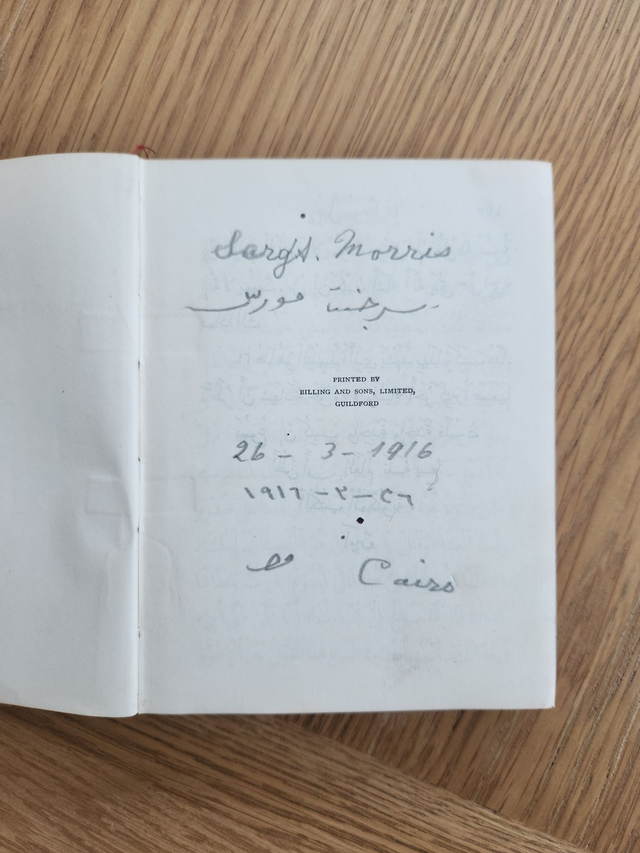 Sergt. Morris
سرجنت مورس
PRINTED BY
BILLING AND SONS, LIMITED,
GUILDFORD
26 - 3 - 1916
٢٦ - ٣ - ١٩١٦
Cairo